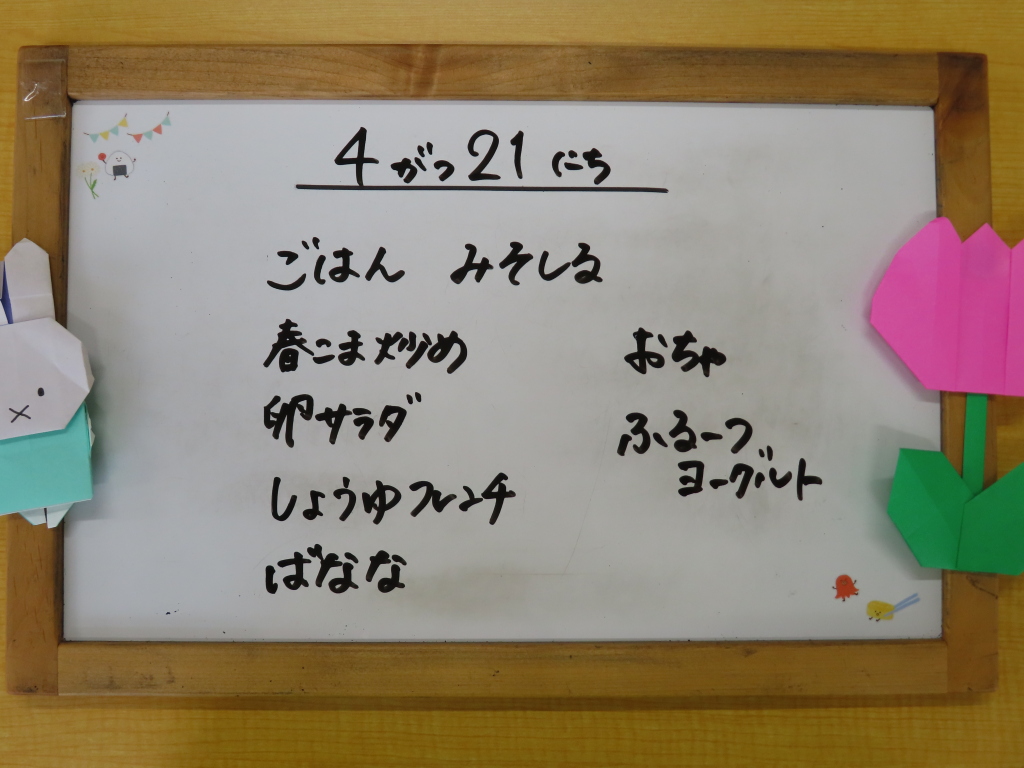 4がつ21にち
ごはん みそしる
春こま炒め
卵サラダ
しょうゆフレンチ
ばなな
おちゃ
ふるーつ
ヨーグルト